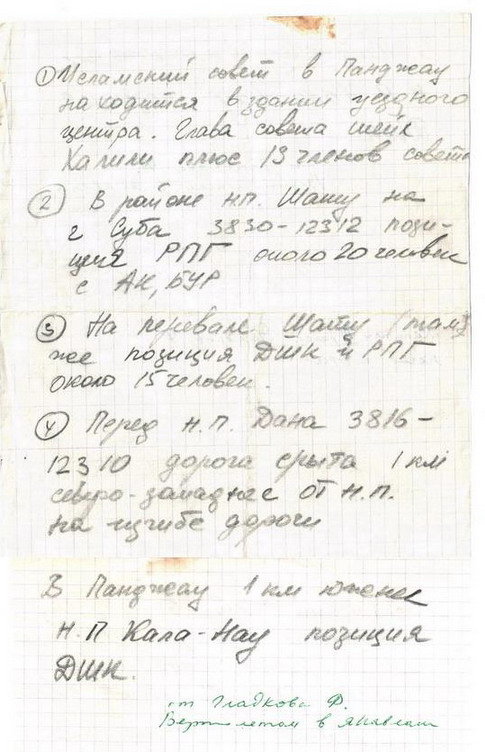 ① Исламский совет в Панджау
находится в здании уездного
центра. Глава совета шейх
Халили плюс 19 членов совета
② В районе н.п. Шату на
г Суба 3830-12312 пози-
ция РПГ около 20 человек
с АК, БУР
③ На перевале Шату (там)
же позиция ДШК и РПГ
около 15 человек.
④ Перед н.п. Дана 3816-
12310 дорога срыта 1 км
северо-западнее от н.п.
на изгибе дороги
В Панджау 1 км южнее
Н.П Кала-Нау позиция
ДШК.
от Гладкова Ф.
в